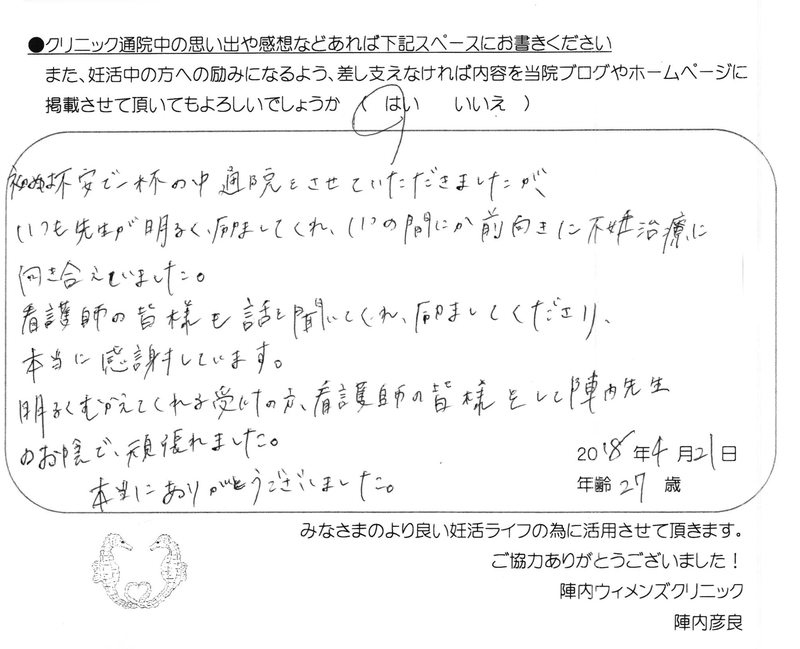 ●クリニック通院中の思い出や感想などあれば下記スペースにお書きください
また、妊活中の方への励みになるよう、差し支えなければ内容を当院ブログやホームページに
掲載させて頂いてもよろしいでしょうか （ はい　いいえ ）
初めは不安で一杯の中通院をさせていただきましたが、
いつも先生が明るく、励ましてくれ、いつの間にか前向きに不妊治療に
向き合えていました。
看護師の皆様も話を聞いてくれ、励ましてくださり、
本当に感謝しています。
明るくむかえてくれる受付の方、看護師の皆様そして陣内先生
のお陰で、頑張れました。
本当にありがとうございました。
2018年4月21日
年齢 27 歳
みなさまのより良い妊活ライフの為に活用させて頂きます。
ご協力ありがとうございました！
陣内ウィメンズクリニック
陣内彦良